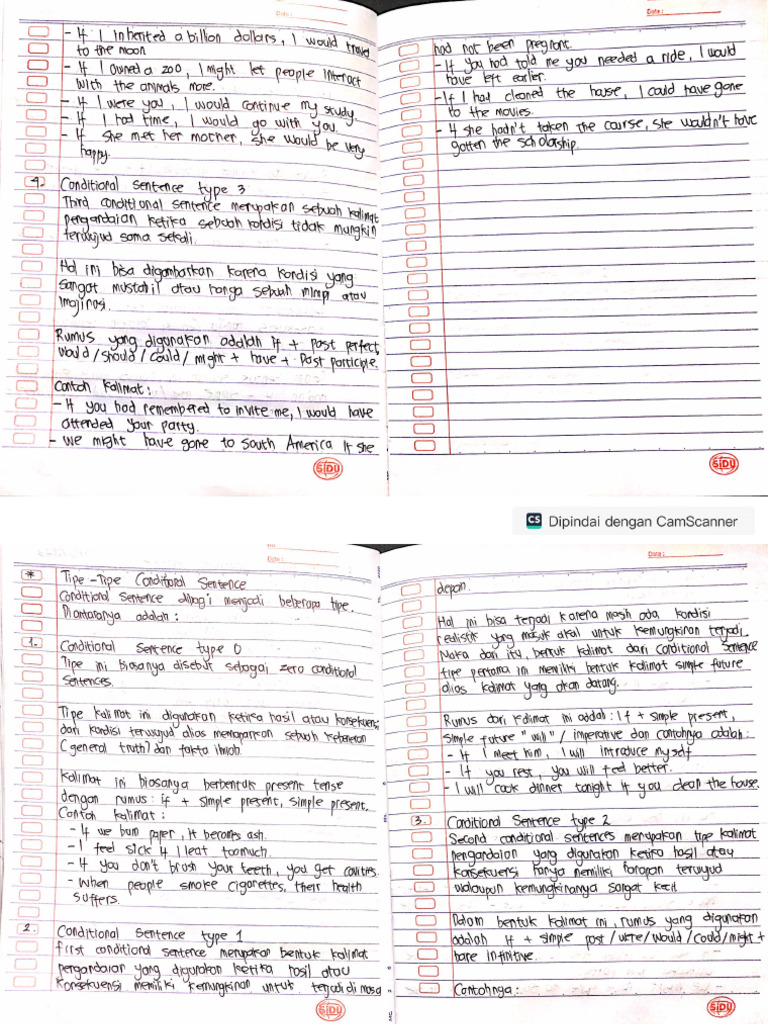 Date :
- If I inherited a billion dollars, I would travel
to the moon
- If I owned a zoo, I might let people interact
with the animals more.
- If I were you, I would continue my study.
- If I had time, I would go with you.
- If she met her mother, she would be very
happy.
4. Conditional sentence type 3
Third conditional sentence merupakan sebuah kalimat
pengandaian ketika sebuah kondisi tidak mungkin
terwujud sama sekali.
Hal ini bisa digambarkan karena kondisi yang
sangat mustahil atau hanya sebuah mimpi atau
imajinasi.
Rumus yang digunakan adalah If + Past perfect,
would/should/could/might + have + Past participle.
Contoh kalimat :
- If you had remembered to invite me, I would have
attended your party.
- We might have gone to South America if she
SIDU
Date :
had not been pregnant.
- If you had told me you needed a ride, I would
have left earlier.
- If I had cleaned the house, I could have gone
to the movies.
- If she hadn't taken the course, she wouldn't have
gotten the scholarship.
SIDU
CS Dipindai dengan CamScanner
Date :
* Tipe - Tipe Conditional Sentence
Conditional Sentence dibagi menjadi beberapa tipe.
Diantaranya adalah :
1. Conditional Sentence type 0
Tipe ini biasanya disebut sebagai zero conditional
sentences.
Tipe kalimat ini digunakan ketika hasil atau konsekuensi
dari kondisi terwujud alias memaparkan sebuah kebenaran
(general truth) dan fakta ilmiah
Kalimat ini biasanya berbentuk present tense
dengan rumus : if + simple present, simple present.
Contoh kalimat :
- If we burn paper, it becomes ash.
- I feel sick if I eat too much.
- If you don't brush your teeth, you get cavities.
- When people smoke cigarettes, their health
suffers.
2. Conditional Sentence type 1
first conditional sentence merupakan bentuk kalimat
pengandaian yang digunakan ketika hasil atau
konsekuensi memiliki kemungkinan untuk terjadi di masa
SIDU
Date :
depan.
Hal ini bisa terjadi karena masih ada kondisi
realistik yang masuk akal untuk kemungkinan terjadi.
Maka dari itu, bentuk kalimat dari conditional Sentence
tipe pertama ini memiliki bentuk kalimat simple future
alias kalimat yang akan datang.
Rumus dari kalimat ini adalah : If + simple present,
simple future "will" / imperative dan contohnya adalah :
- If I meet him, I will introduce myself
- If you rest, you will feel better.
- I will cook dinner tonight if you clean the house.
3. Conditional Sentence type 2
Second conditional sentences merupakan tipe kalimat
pengandaian yang digunakan ketika hasil atau
konsekuensi hanya memiliki harapan terwujud
walaupun kemungkinannya sangat kecil
Dalam bentuk kalimat ini, rumus yang digunakan
adalah If + simple past / were / would / could / might +
bare infinitive.
Contohnya :
SIDU